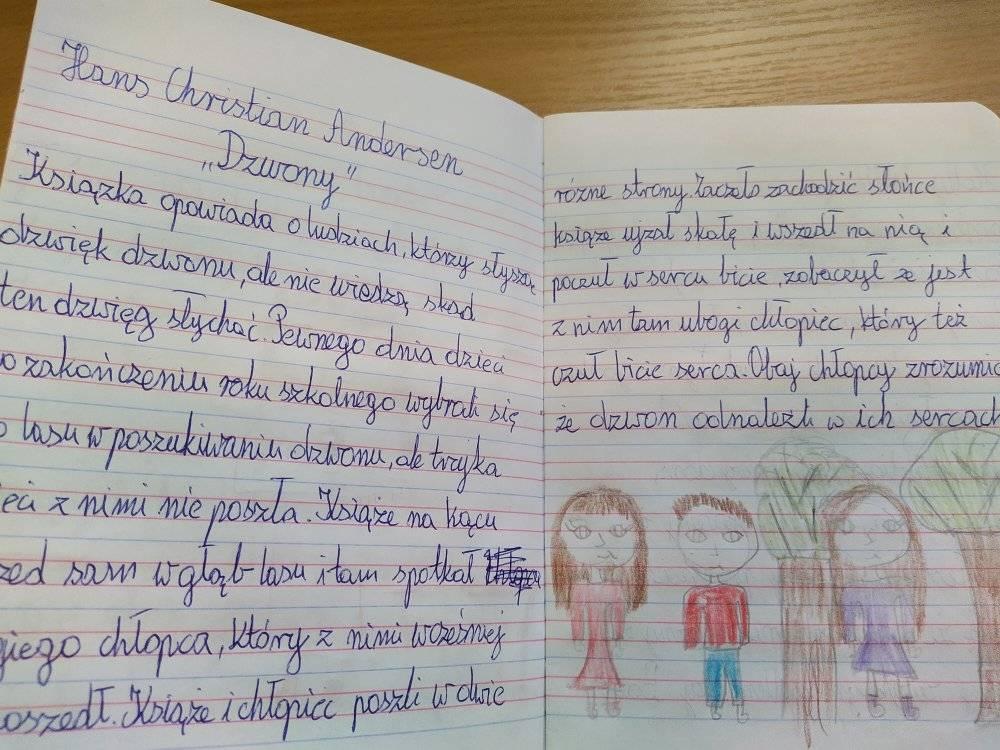 Hans Christian Andersen
„Dzwony"
Książka opowiada o ludziach, którzy słyszą
dzwięk dzwonu, ale nie wiedzą skąd
ten dzwięg słychać. Pewnego dnia dzieci
o zakończeniu roku szkolnego wybrali się
o lasu w poszukiwaniu dzwonu, ale trzyka
eci z nimi nie poszła. Książe na kącu
zed sam w głąb lasu i tam spotkał
giego chłopca, który z nimi wcześniej
oszedł. Książe i chłopiec poszli w dwie
różne strony. Zaczęło zachodzić słońce
książe ujzał skałę i wszedł na nią i
poczuł w sercu bicie, zobaczył że jest
z nim tam ubogi chłopiec, który też
czuł bicie serca. Obaj chłopcy zrozumie
że dzwon odnaleźli w ich sercach